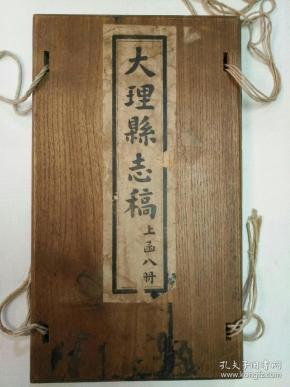 大理縣志稿
上函八冊
孔夫子旧书网